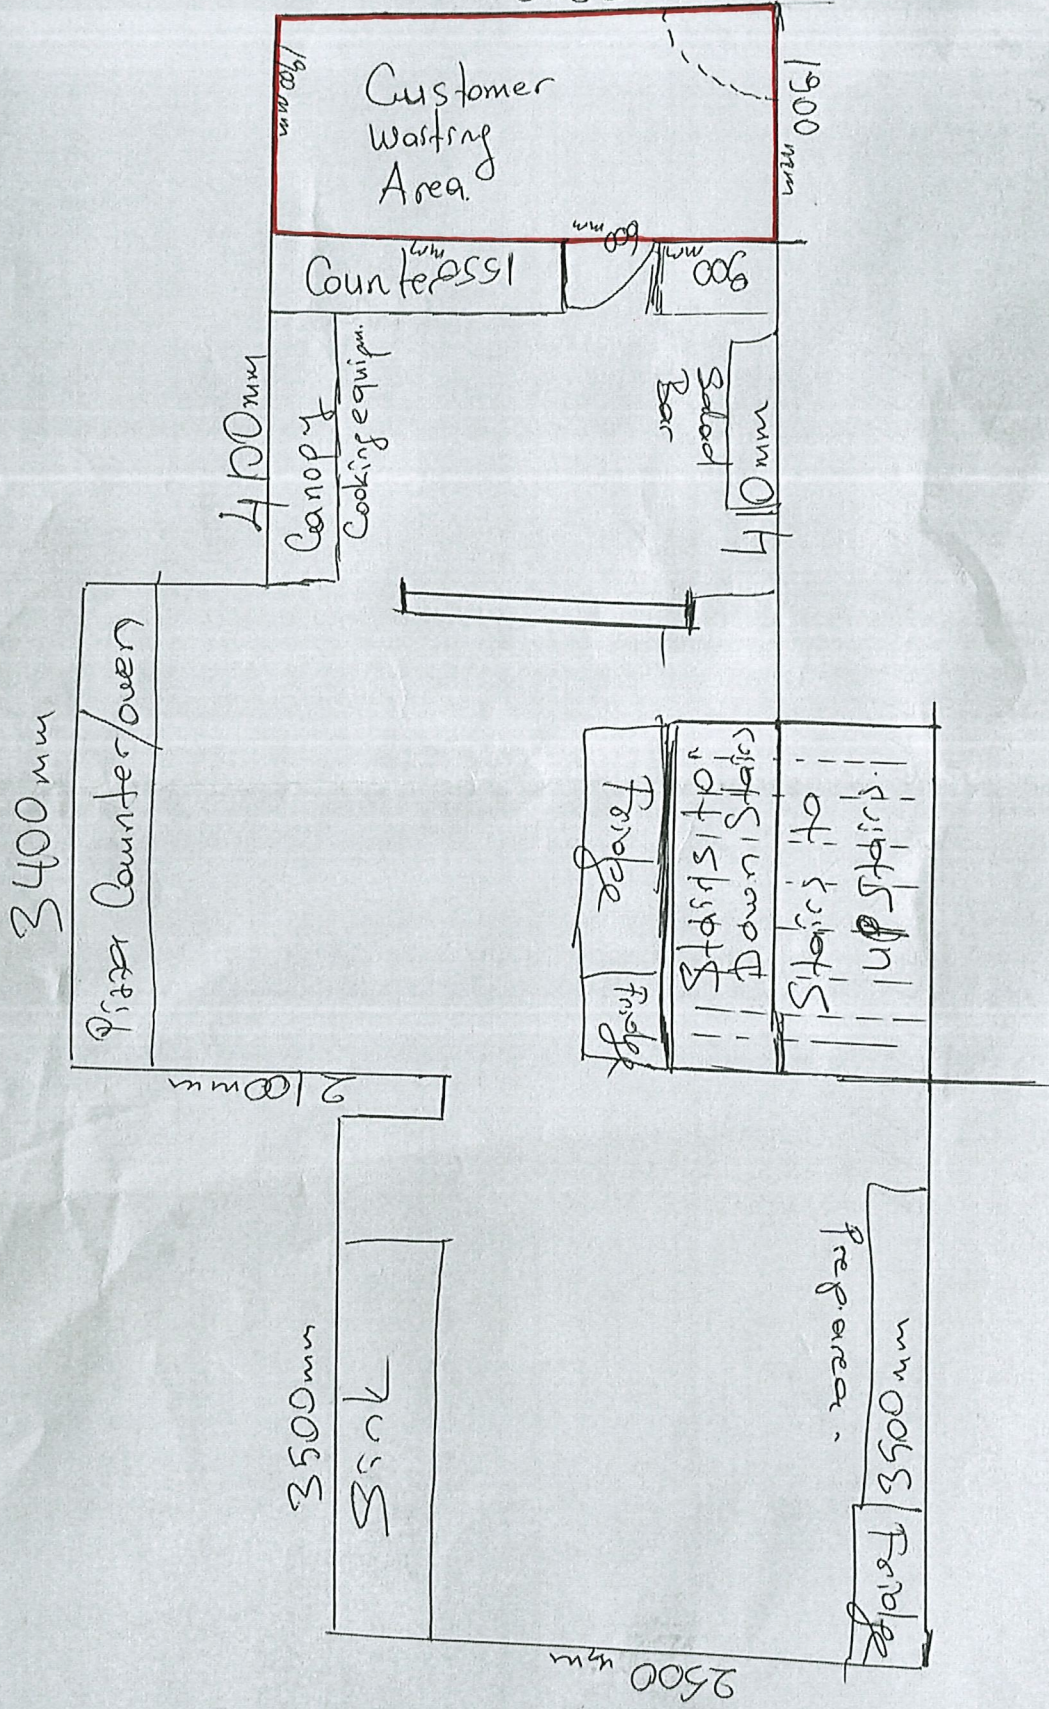 1900 mm
Customer
Waiting
Area.
1900
mm
Counter
1550
mm
600 mm
900
mm
4100mm
Canopy
Cooking equipm.
Salad
Bar
4100mm
3400mm
Pizza Counter/oven
Fridge
Fridge
Stairs to
Down Stairs
Stairs to
up Stairs.
2100mm
3500mm
Sink
Prep. area.
3500mm
Fridge
2500 mm